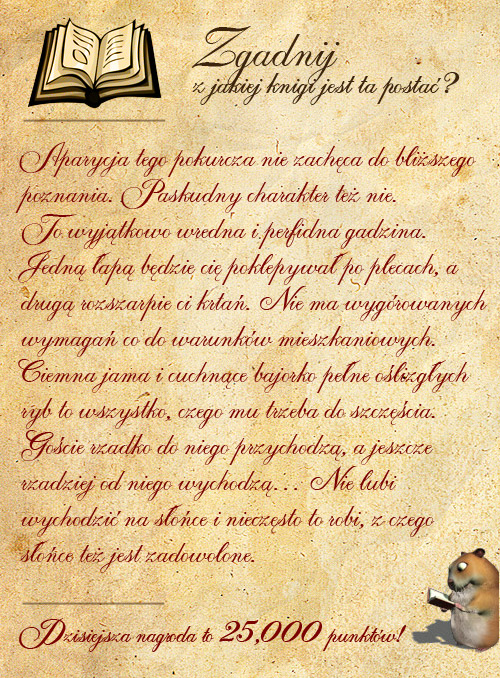 Zgadnij
z jakiej knigi jest ta postać?
Aparycja tego pokurcza nie zachęca do bliższego
poznania. Paskudny charakter też nie.
To wyjątkowo wredna i perfidna gadzina.
Jedną łapą będzie cię poklepywał po plecach, a
drugą rozszarpie ci krtań. Nie ma wygórowanych
wymagań co do warunków mieszkaniowych.
Ciemna jama i cuchnące bajorko pełne oślizgłych
ryb to wszystko, czego mu trzeba do szczęścia.
Goście rzadko do niego przychodzą, a jeszcze
rzadziej od niego wychodzą... Nie lubi
wychodzić na słońce i nieczęsto to robi, z czego
słońce też jest zadowolone.
Dzisiejsza nagroda to 25,000 punktów!